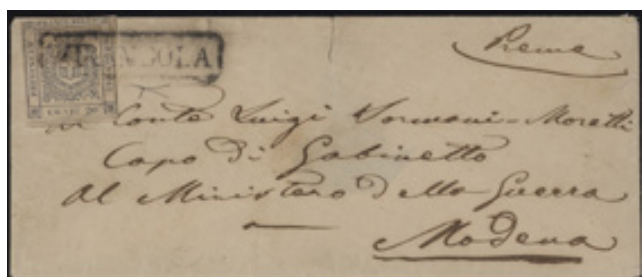 MIRANDOLA
Preme
Al Conte Luigi Sormani-Moretti
Capo di Gabinetto
al Ministero della Guerra
Modena